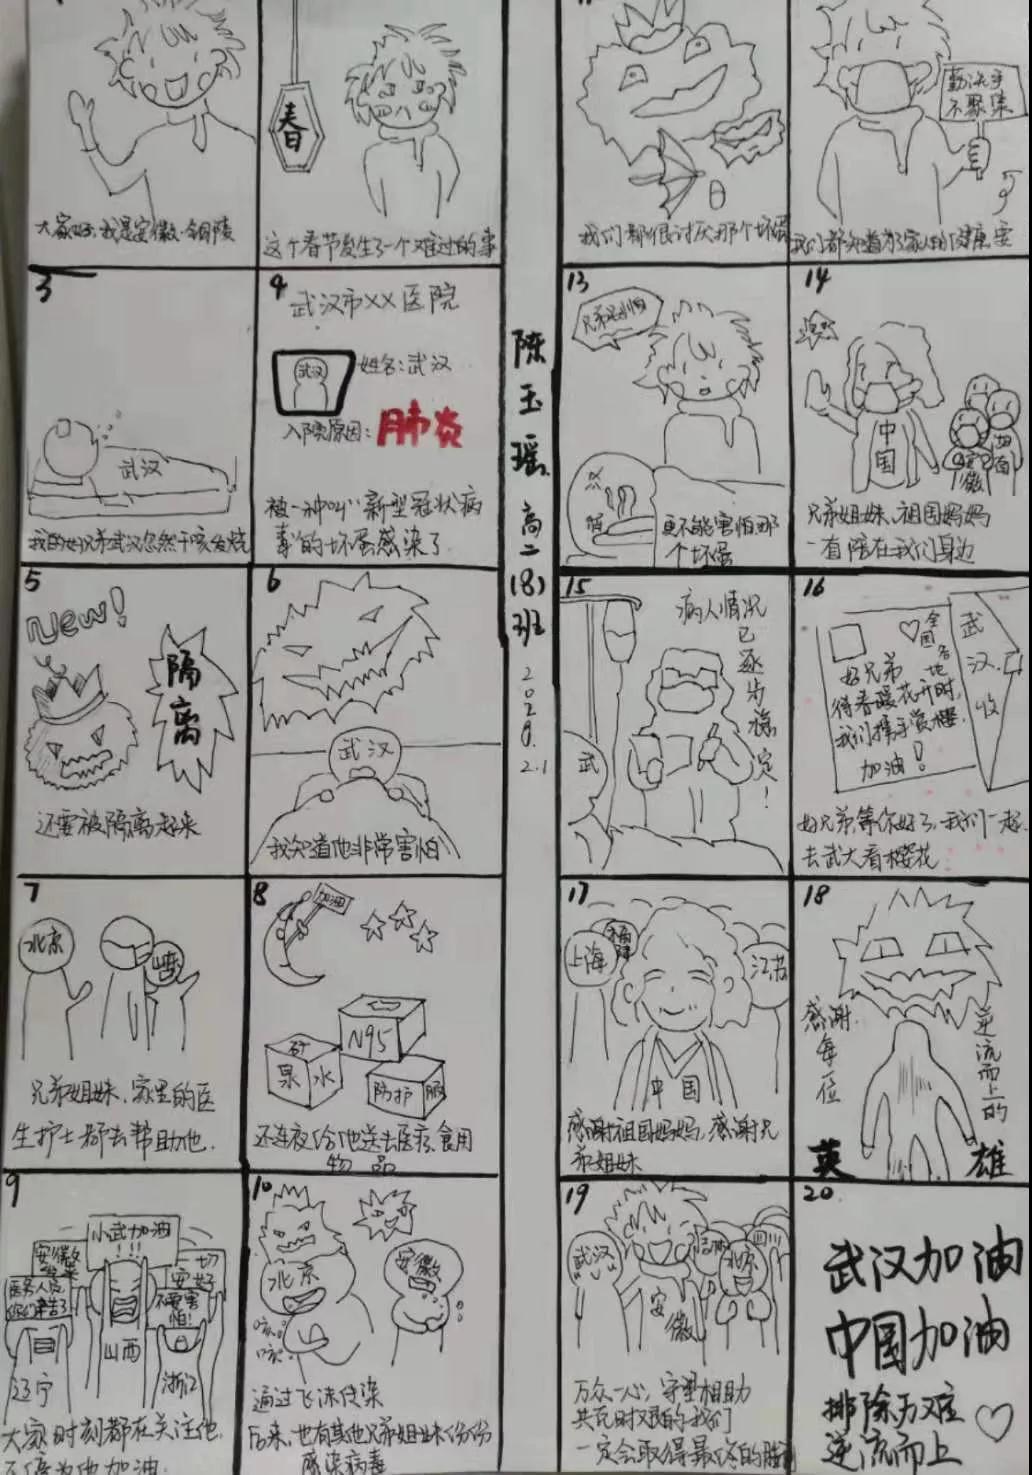 大家好,我是安徽·铜陵
春
这个春节发生了一个难过的事
3
武汉
我的好兄弟武汉忽然干咳发烧
4
武汉市XX医院
武汉
姓名:武汉
入院原因:肺炎
被一种叫“新型冠状病
毒”的坏蛋感染了
5
New!
隔离
还要被隔离起来
6
武汉
我知道他非常害怕
7
北京
兄弟姐妹,家里的医
生护士都去帮助他.
8
加油
N95
矿泉水
防护服
还连夜给他送去医疗,食用
物品
9
小武加油
!!!
安徽
一切
安好
医务人员
不要害
怕!
山西
辽宁
浙江
大家时刻都在关注他
10
北京
安徽
通过飞沫传染
后来,也有其他兄弟姐妹纷纷
感染病毒
陈玉瑶
高二(8)班
2020.2.1
我们都很讨厌那个坏蛋
勤洗手
不聚集
我们都知道为了家人的健康要
13
兄弟别怕
更不能害怕那
个坏蛋
14
中国
安徽
兄弟姐妹,祖国妈妈
一直陪在我们身边
15
病人情况
已逐步稳定!
武
16
全国各地
好兄弟
待春暖花开时,
我们携手赏樱.
加油!
武汉.收
好兄弟,等你好了,我们一起
去武大看樱花
17
上海
江苏
中国
感谢祖国妈妈,感谢兄
弟姐妹
18
感谢每一位
逆流而上的
英雄
19
武汉
安徽
北京
四川
万众一心,守望相助
共克时艰的我们
一定会取得最终的胜利
20
武汉加油
中国加油
排除万难
逆流而上